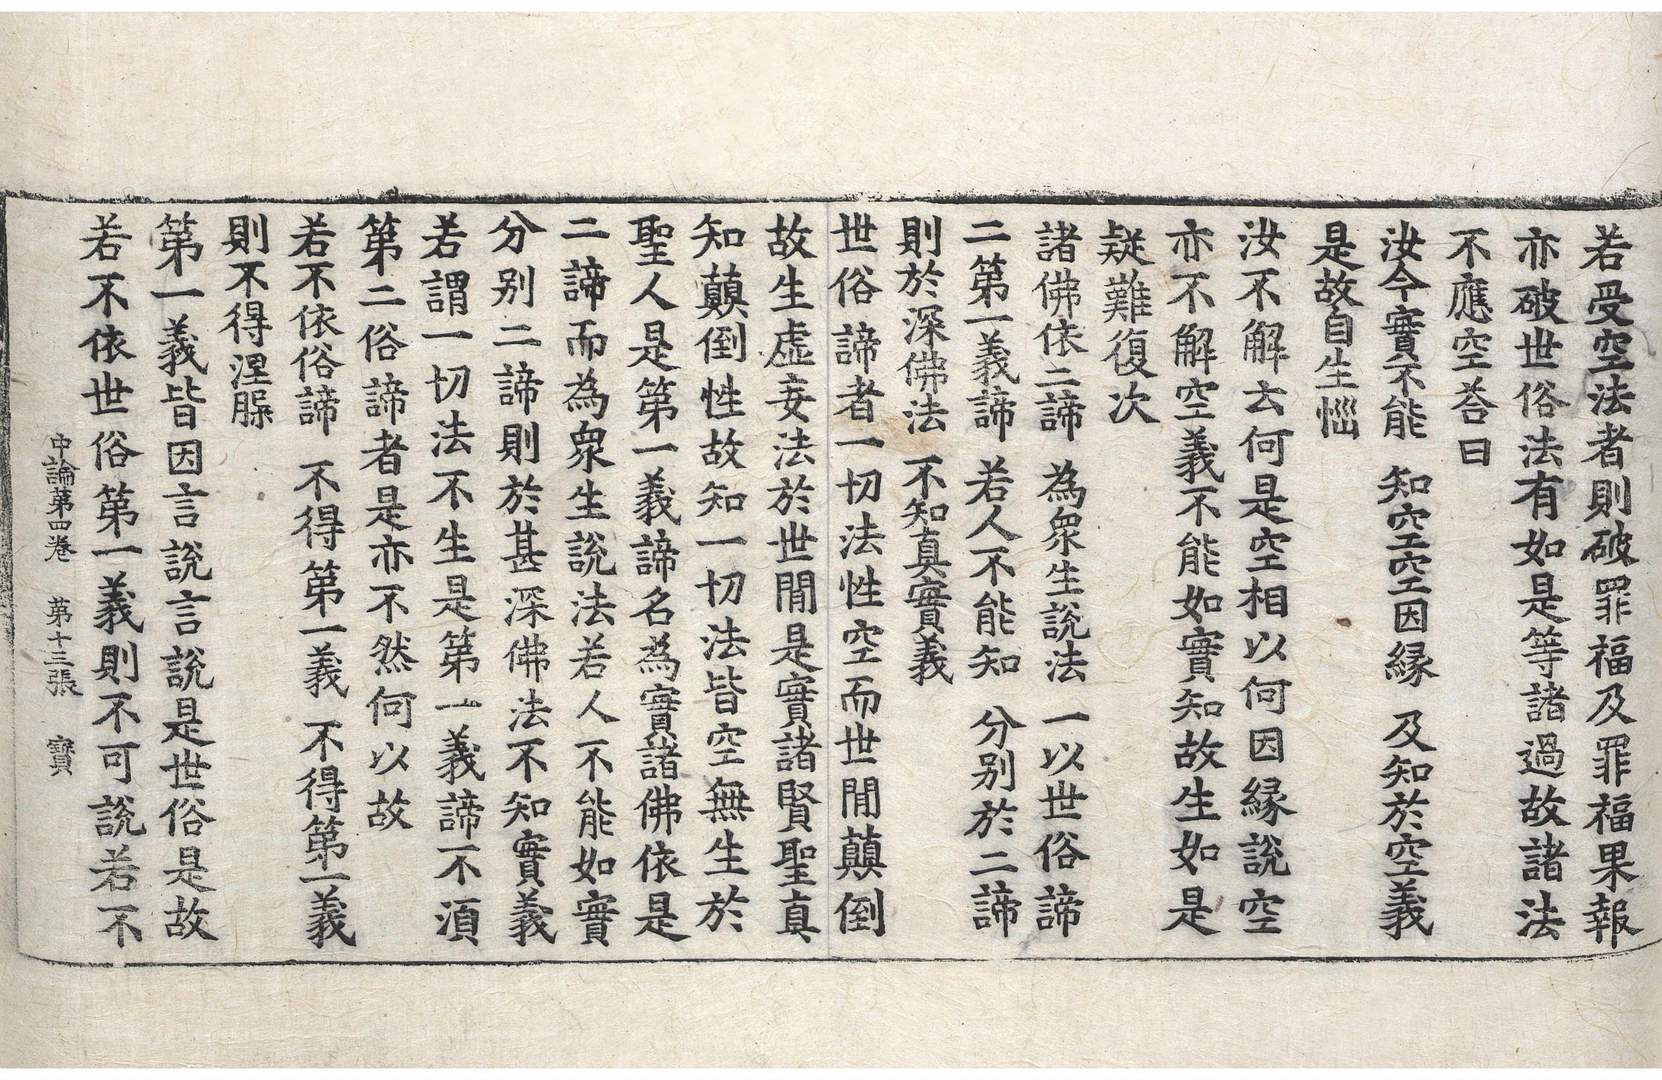 若受空法者則破罪福及罪福果報
亦破世俗法有如是等諸過故諸法
不應空荅曰
汝今實不能 知空空因緣 及知於空義
是故自生惱
汝不解云何是空相以何因緣說空
亦不解空義不能如實知故生如是
疑難復次
諸佛依二諦 為衆生說法 一以世俗諦
二第一義諦 若人不能知 分別於二諦
則於深佛法 不知真實義
世俗諦者一切法性空而世閒顛倒
故生虛妄法於世閒是實諸賢聖真
知顛倒性故知一切法皆空無生於
聖人是第一義諦名為實諸佛依是
二諦而為衆生說法若人不能如實
分別二諦則於甚深佛法不知實義
若謂一切法不生是第一義諦不湏
第二俗諦者是亦不然何以故
若不依俗諦 不得第一義 不得第一義
則不得涅槃
第一義皆因言說言說是世俗是故
若不依世俗第一義則不可說若不
中論第四卷 第十三張 寶